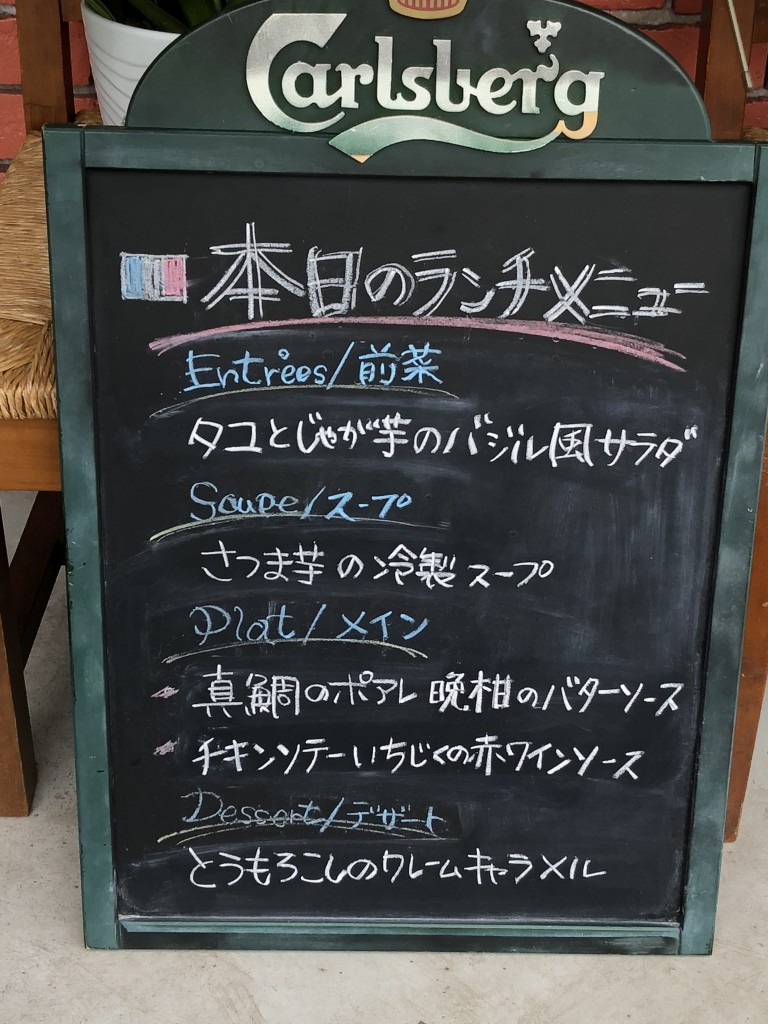 Carlsberg
本日のランチメニュー
Entrées/前菜
タコとじゃが芋のバジル風サラダ
Soupe/スープ
さつま芋の冷製スープ
Plat/メイン
真鯛のポアレ 晩柑のバターソース
チキンソテーいちじくの赤ワインソース
Dessert/デザート
とうもろこしのクレームキャラメル